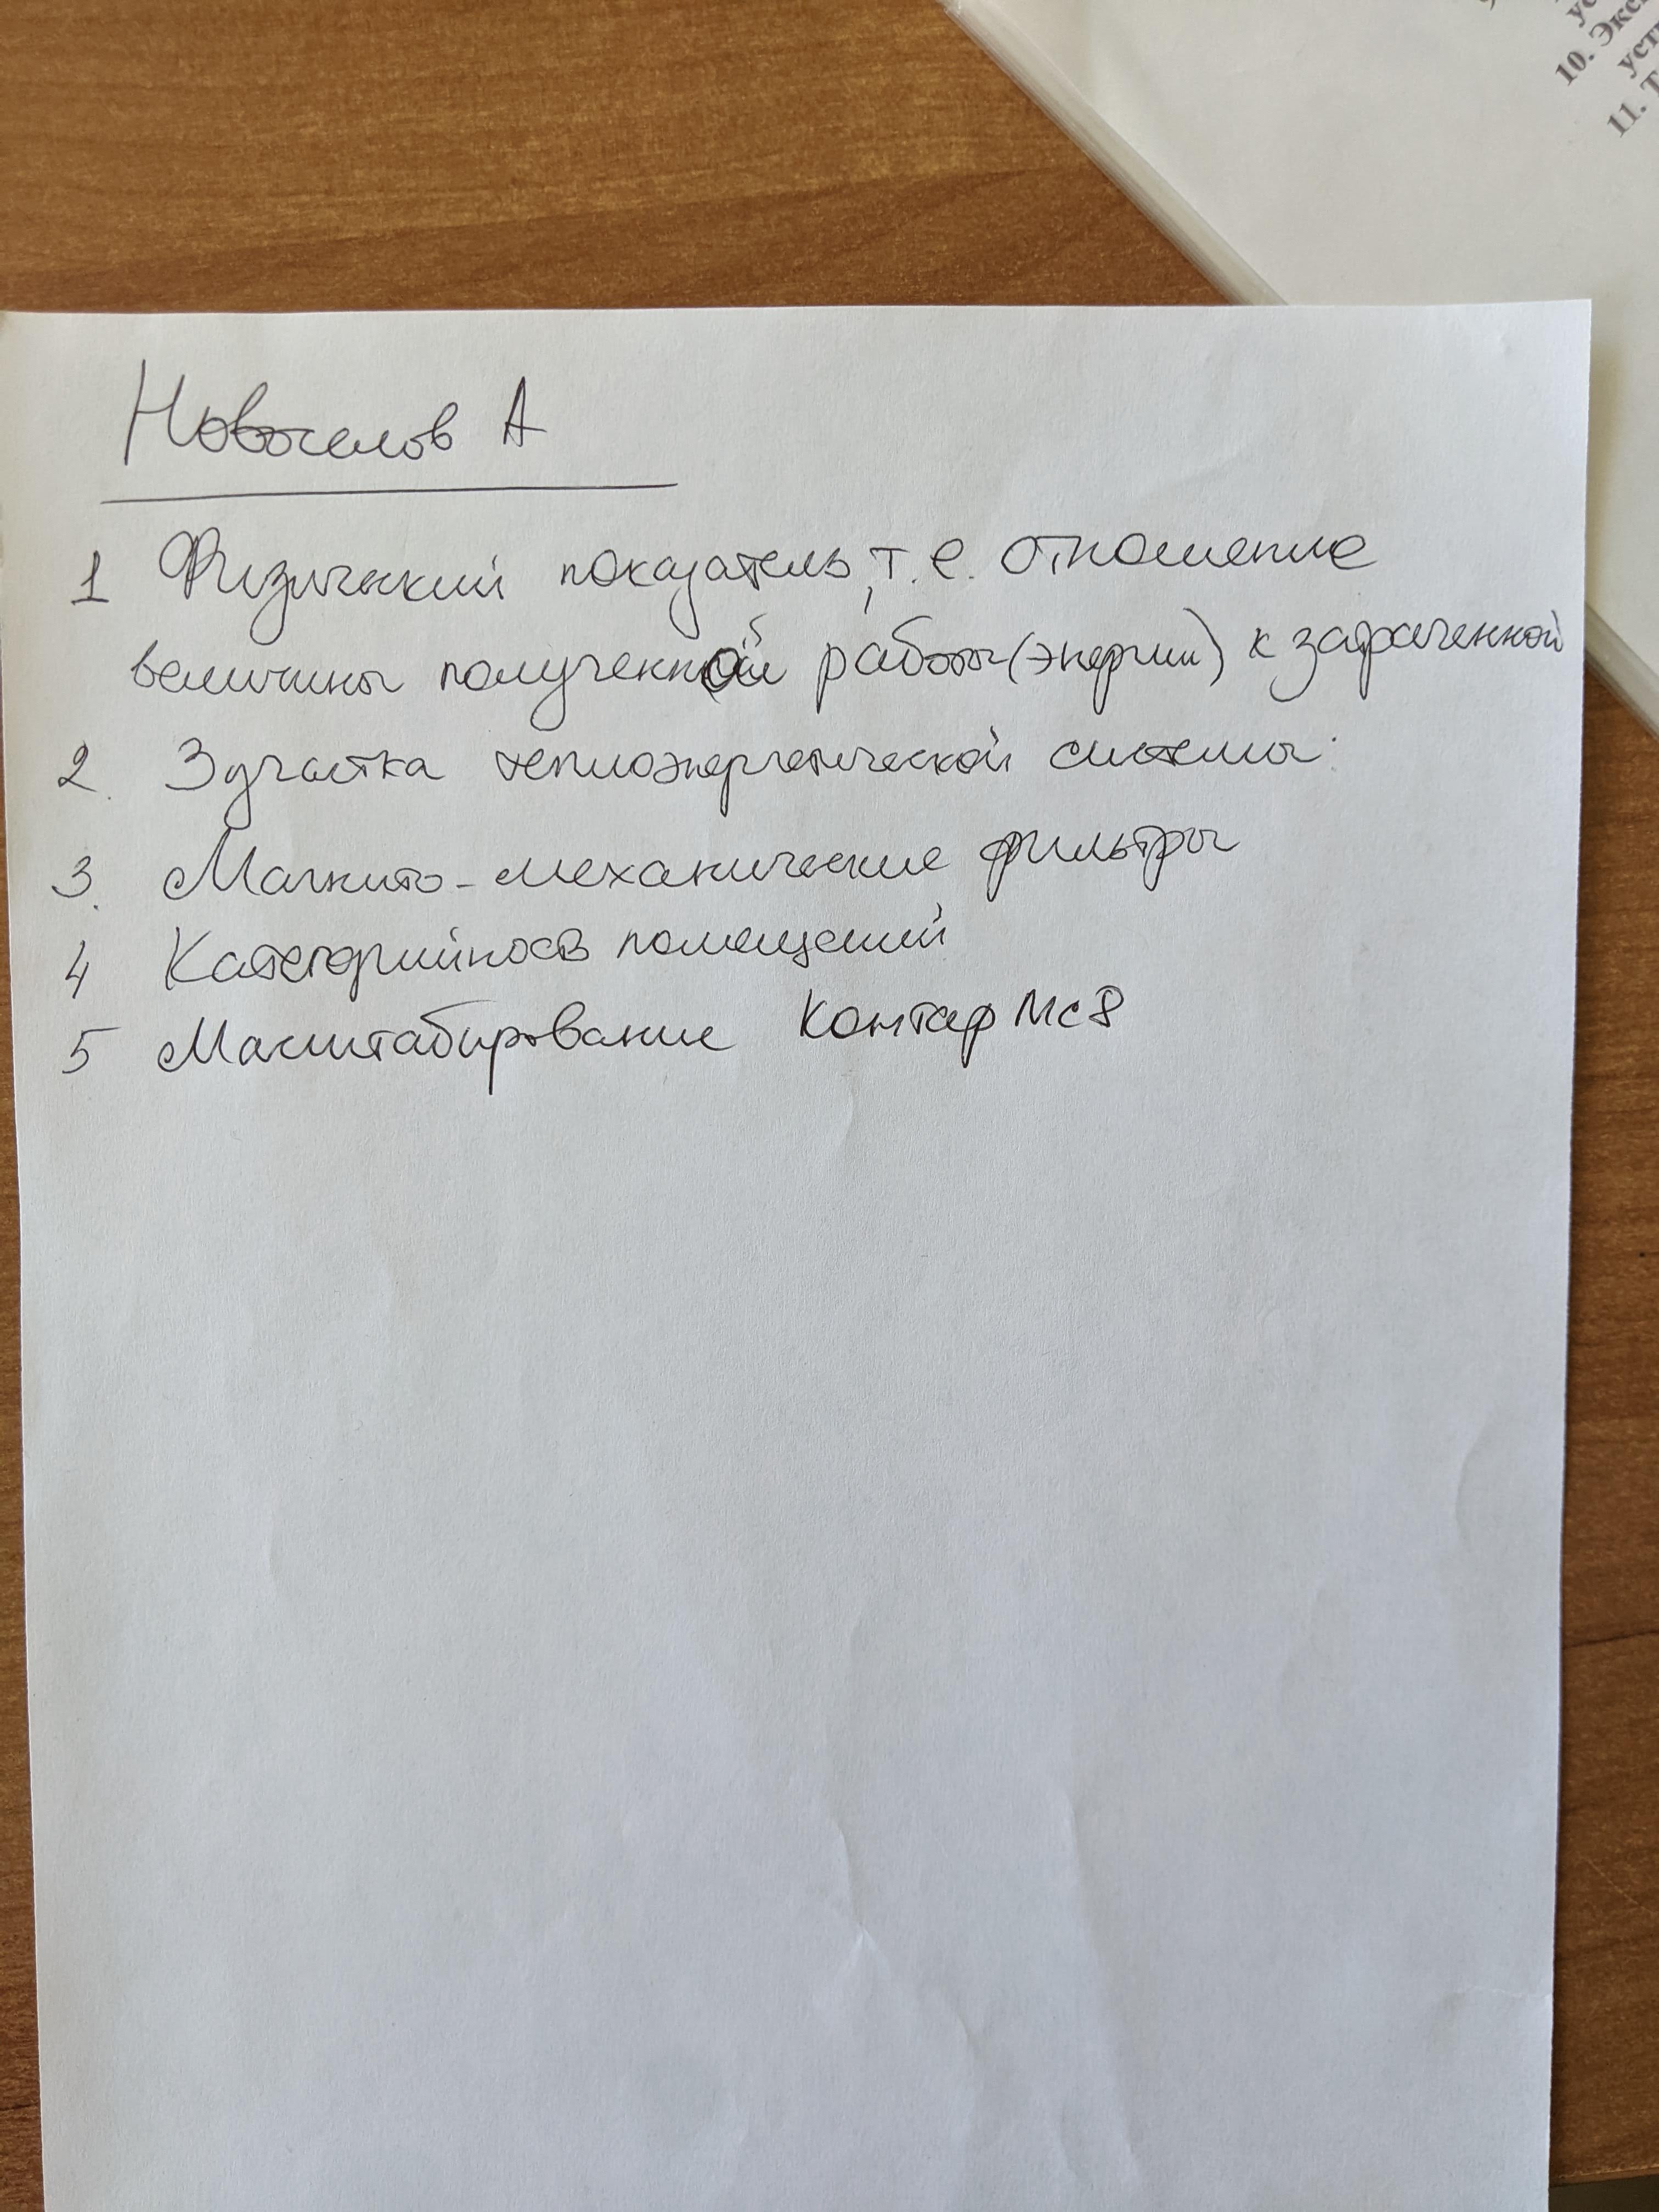 10. Экс
11. Т
Новоселов А
1 Физический показатель, т.е. отношение
величины полученной работы (энергии) к затраченной
2. 3 участка теплоэнергетической системы:
3. Магнито-механические фильтры
4 Категорийность помещений
5 Масштабирование Контар МС8